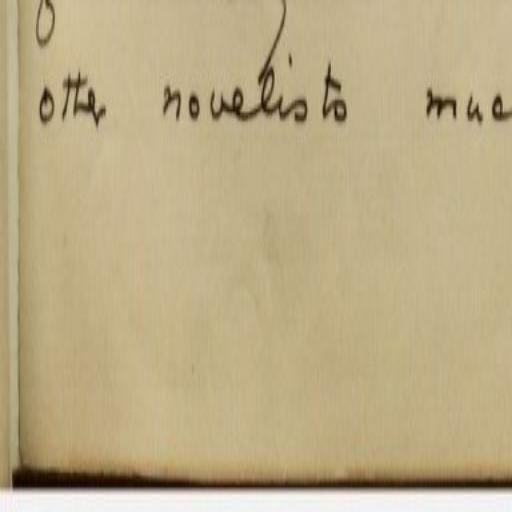 other novelists